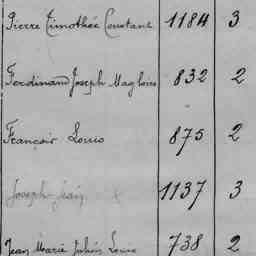 Pierre Timothée Constant 1184 3
Ferdinand Joseph Magloire 832 2
François Louis 875 2
Joseph Jean 1137 3
Jean Marie Julien Louis 738 2